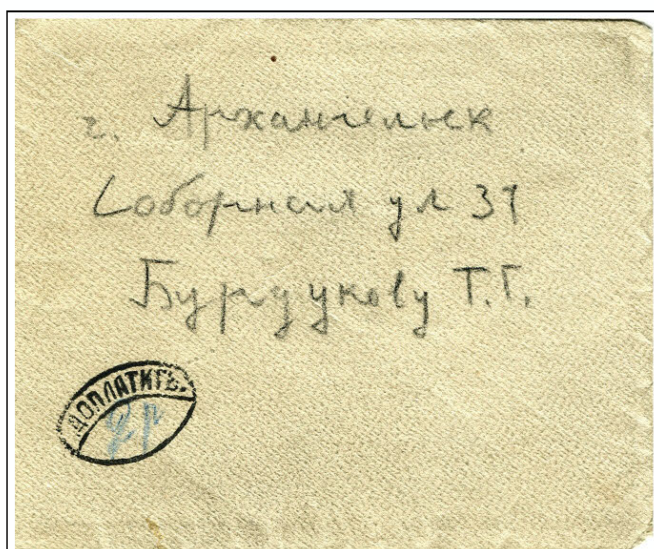 г. Архангельск
Соборная ул 37
Бурдукову Т.Г.
ДОПЛАТИТЬ.